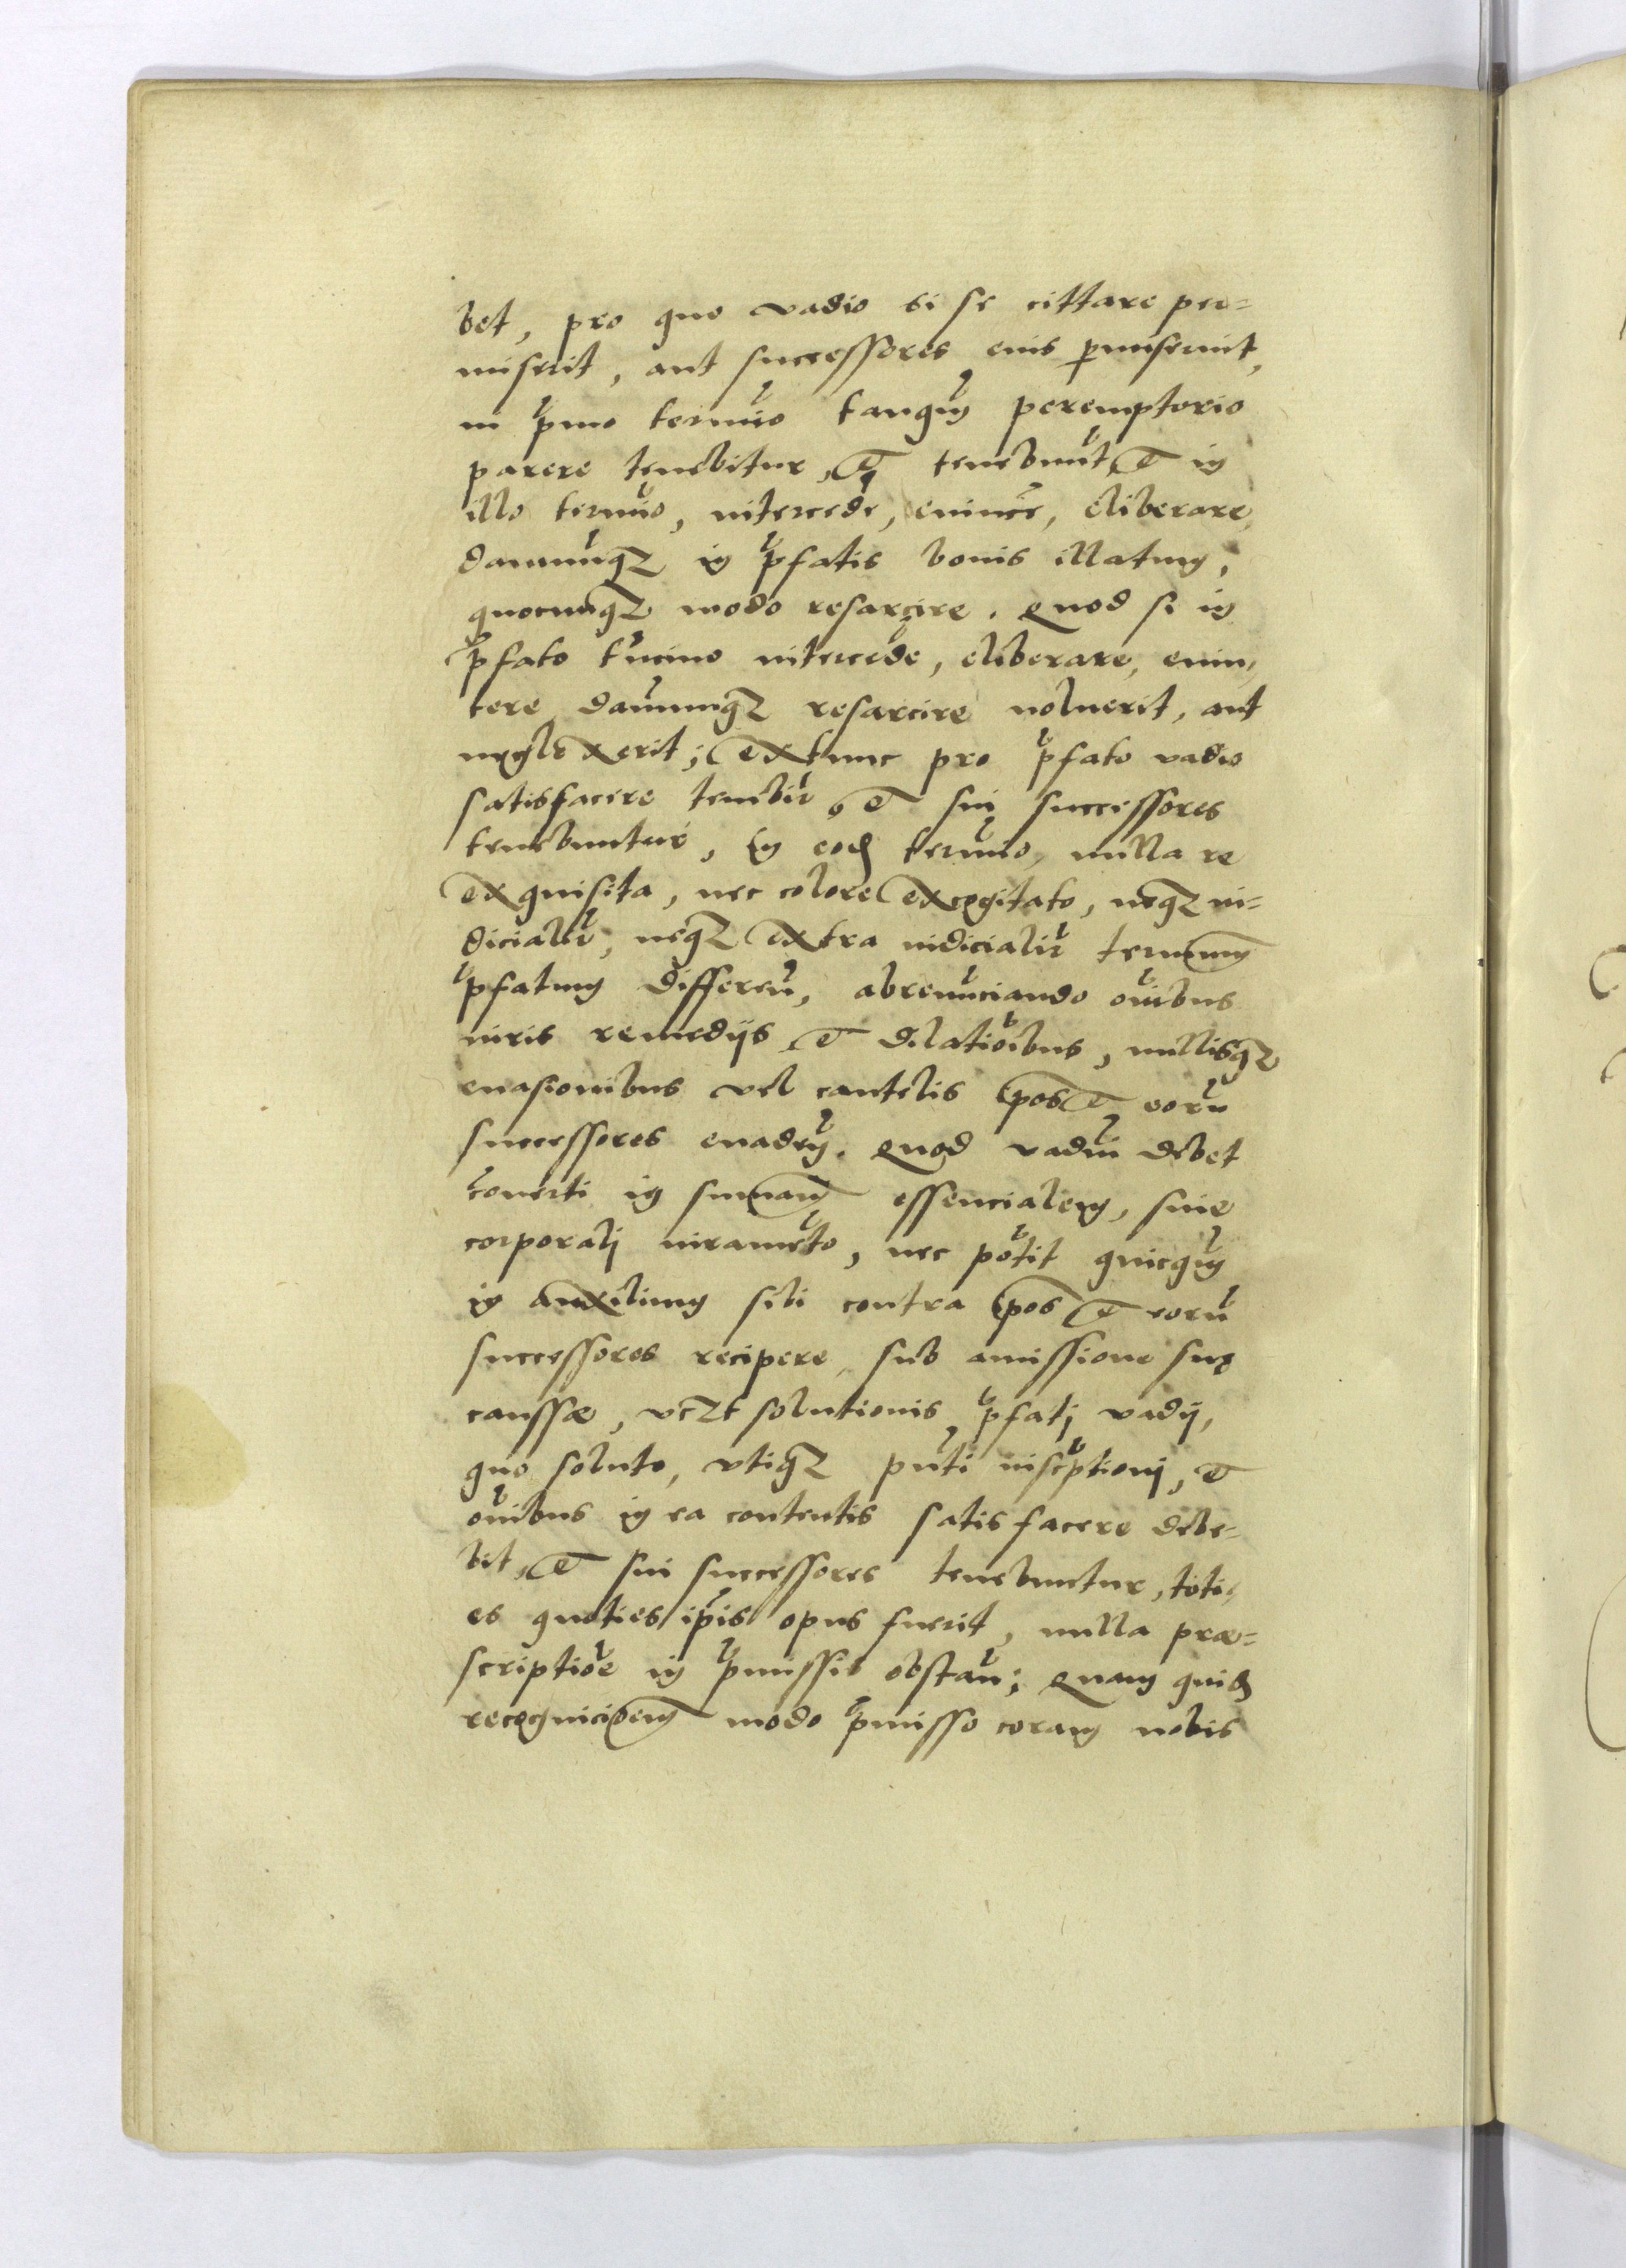 bet, pro quo vadio si se cittare per-
miserit, aut successores eius pmiserint,
in pmo termīo tanqūm peremptorio
parere tenebitur, et tenebunt, et in
illo termīo, intercede, euincēre, eliberare,
damnūqz in pfatis bonis illatum,
quocunqz modo resarcire. Quod si in
pfato tīmino intercede, eliberare, euin,
cere damnumqz resarcire noluerit, aut
neglexerit; extunc pro pfato vadio
satisfacere tenebir, et sui successores
tenebuntur, in eod termīo, nulla re
exquisita, nec colore excogitato, neqz iu-
dicialir, neqz extra iudicialir terminum
pfatum differeñ, abrenūciando oībus
iuris remedijs et dilatioībus, nullisqz
euasionibus vel cautelis ipos et eorū
successores euadeñ. Quod vadiū debet
conerti in summam essencialem, sine
corporalj iuramēto, nec potit quicqūm
in auxilium sibi contra ipos et eorū
successores recipere, sub amissione suę
caussæ, vczt solutionis pfatj vadij,
quo soluto, vtiqz pnti inscptionj, et
oībus in ea contentis satisfacere debe-
bit, et sui successores tenebuntur, toti,
es quoties ipis opus fuerit, nulla præ-
scriptiōe in pmissis obstañ; Quam quid
recognicioem modo pmisso coram nobis